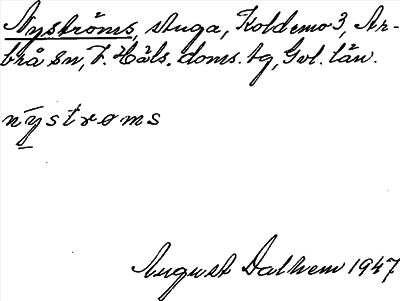 Nyströms, stuga, Koldemo 3, Ar-
brå sn, V. Häls. doms. tg, Gvl. län.
nystrøms
August Dalhem 1947